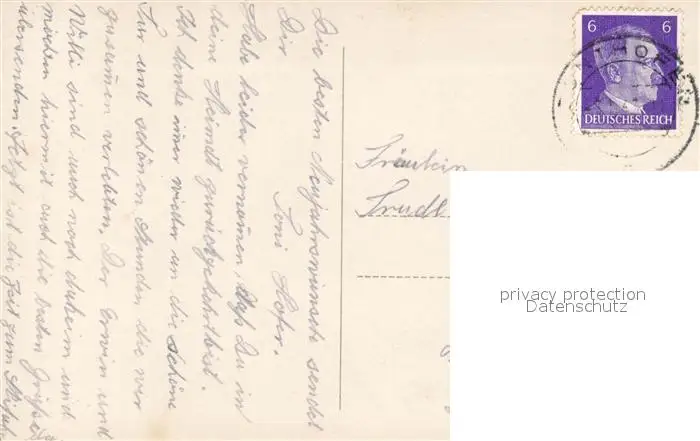 Die besten Neujahrswünsche sendet
Dir
Toni Hofr.
Habe leider vernommen, daß Du in
deine Heimat zurückgekehrt bist.
Ich denke immer wieder an die schöne
Tur und schönen Stunden die wir
zusammen verlebten. Der Erwin und
Willi sind auch noch daheim und
möchen hiermit auch die besten Grüße
übersenden. Jetzt ist die Zeit zum
6 6
DEUTSCHES REICH
Fräulein
Trudl
privacy protection
Datenschutz